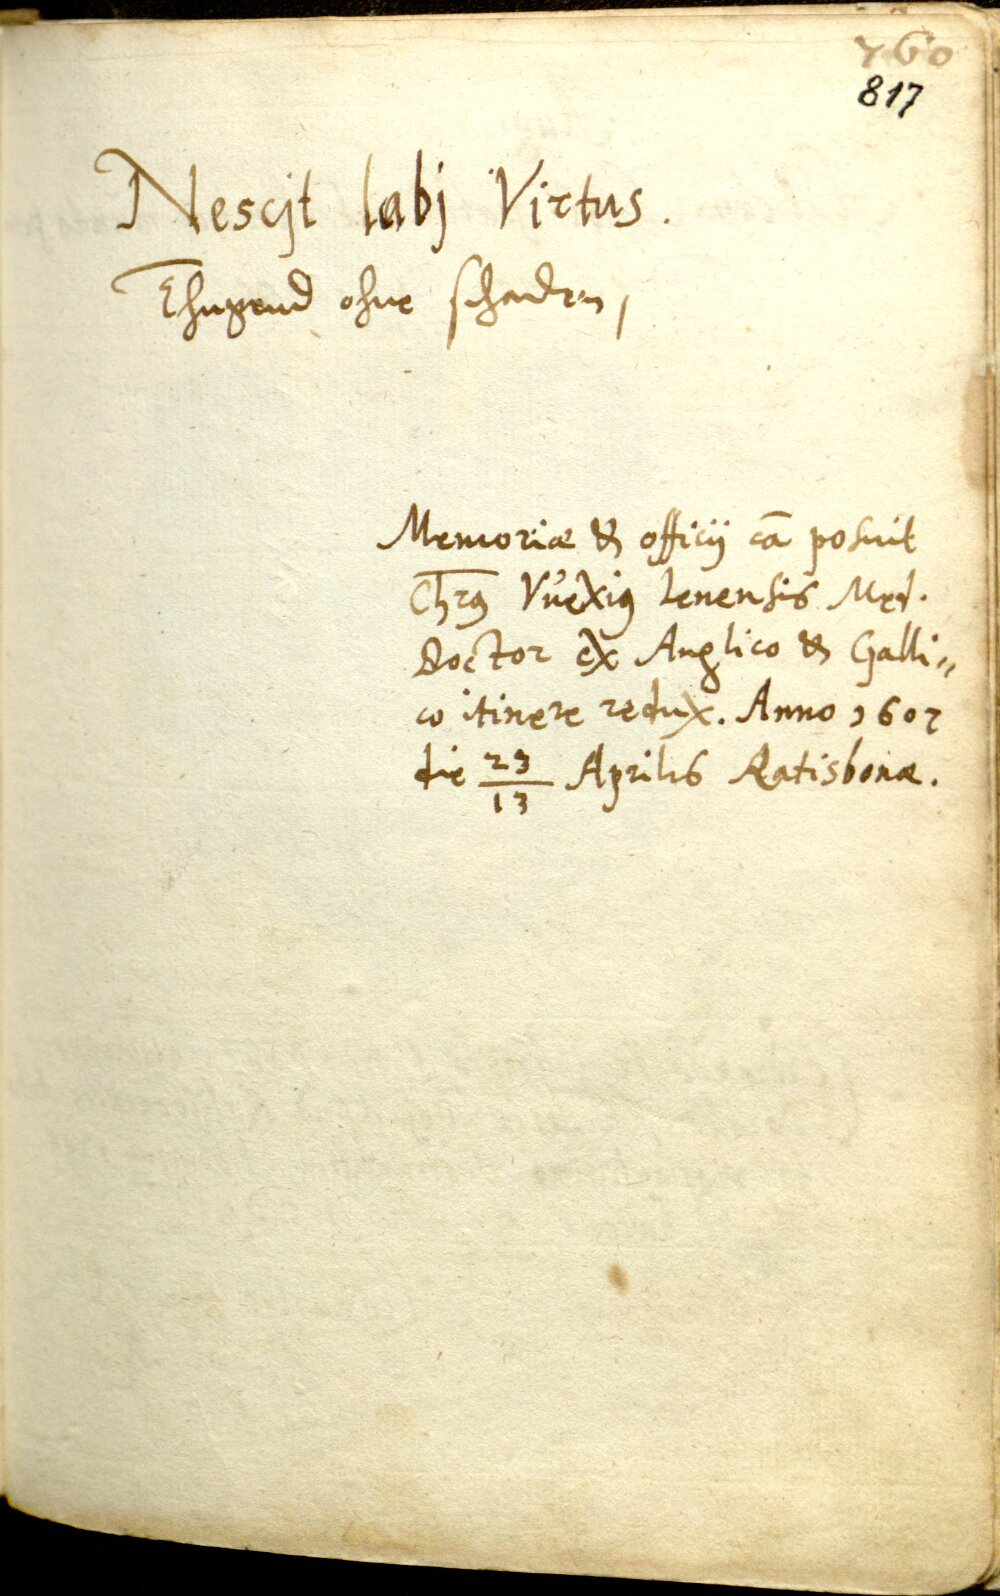 760
817
Nescjt labj Virtus.
Thugend ohne schaden,
Memoriæ & officij cā posuit
Chr9 Vuexi9 Lenensis Med.
Doctor ex Anglico & Galli„
co itinere redux. Anno 1607
die 23/13 Aprilis Ratisbonæ.